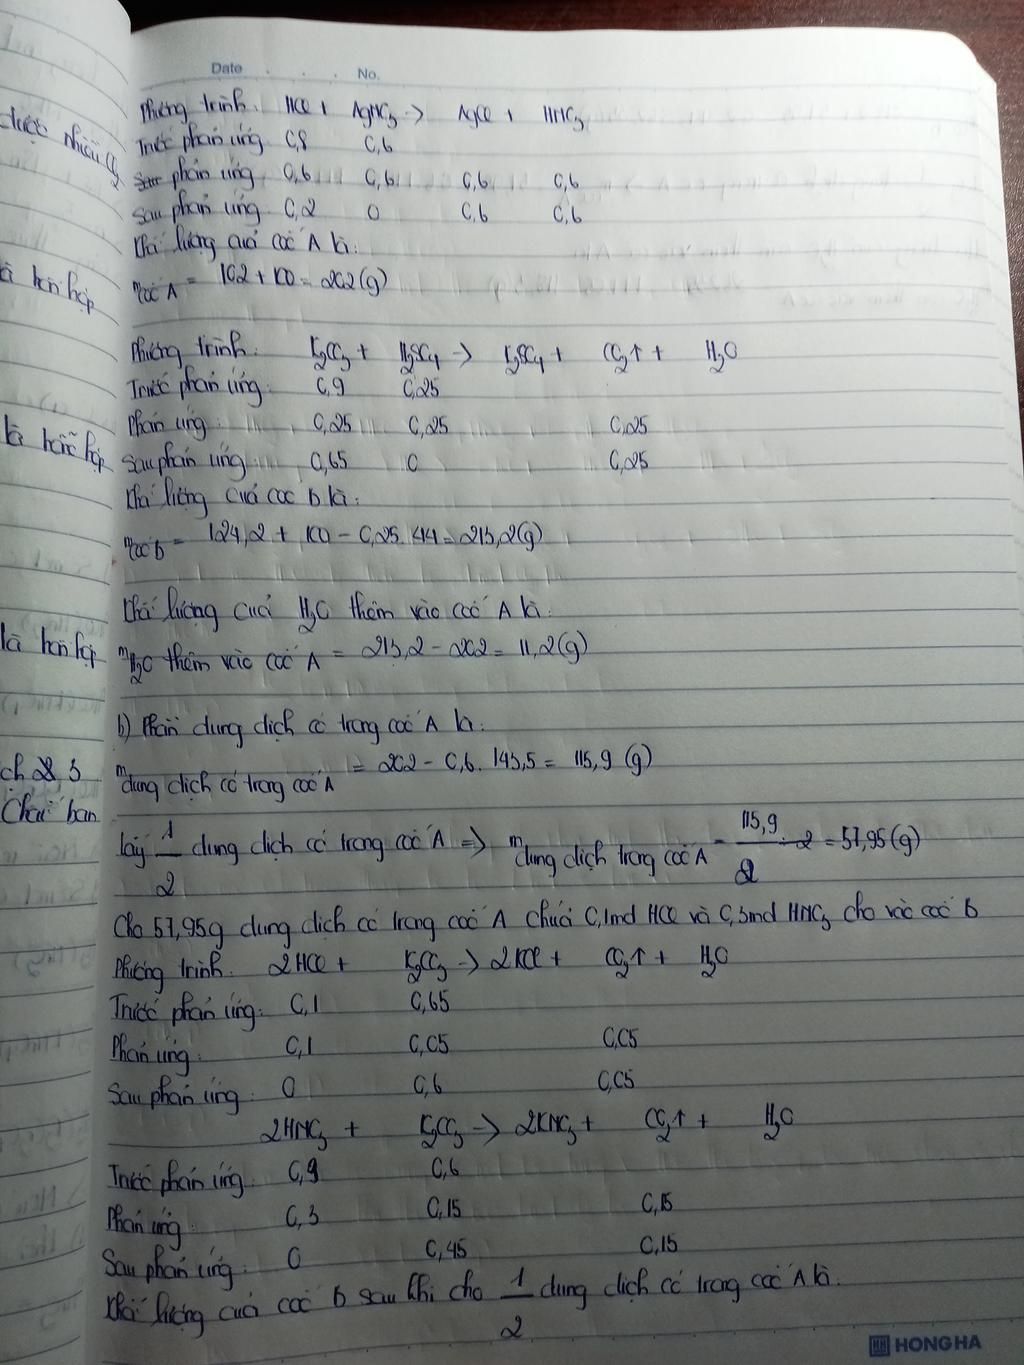 Date . . . No.
Phương trình: HCl + AgNO3 -> AgCl + HNO3
Trước phản ứng 0,8 0,6
phản ứng 0,6 0,6 0,6 0,6
Sau phản ứng 0,2 0 0,6 0,6
Khối lượng cuả cốc A là:
mcốc A = 102 + 100 = 202 (g)
Phương trình: K2CO3 + H2SO4 -> K2SO4 + CO2↑ + H2O
Trước phản ứng: 0,9 0,25
Phản ứng: 0,25 0,25 0,25
Sau phản ứng: 0,65 0 0,25
Khối lượng cuả cốc b là:
mcốc b = 124,2 + 100 - 0,25.44 = 213,2(g)
Khối lượng cuả H2O thêm vào cốc A là:
mH2O thêm vào cốc A = 213,2 - 202 = 11,2(g)
b) Phần dung dịch có trong cốc A là:
mdung dịch có trong cốc A = 202 - 0,6. 143,5 = 115,9 (g)
lấy 1/2 dung dịch có trong cốc A => mdung dịch trong cốc A = 115,9/2 : 2 = 57,95(g)
Cho 57,95g dung dịch có trong cốc A chứa 0,1mol HCl và 0,3mol HNO3 cho vào cốc b
Phương trình: 2HCl + K2CO3 -> 2KCl + CO2↑ + H2O
Trước phản ứng: 0,1 0,65
Phản ứng: 0,1 0,05 0,05
Sau phản ứng: 0 0,6 0,05
2HNO3 + K2CO3 -> 2KNO3 + CO2↑ + H2O
Trước phản ứng: 0,9 0,6
Phản ứng: 0,3 0,15 0,15
Sau phản ứng: 0 0,45 0,15
Khối lượng cuả cốc b sau khi cho 1/2 dung dịch có trong cốc A là:
HONG HA
là hỗn hợp
là hỗn hợp
là hỗn hợp